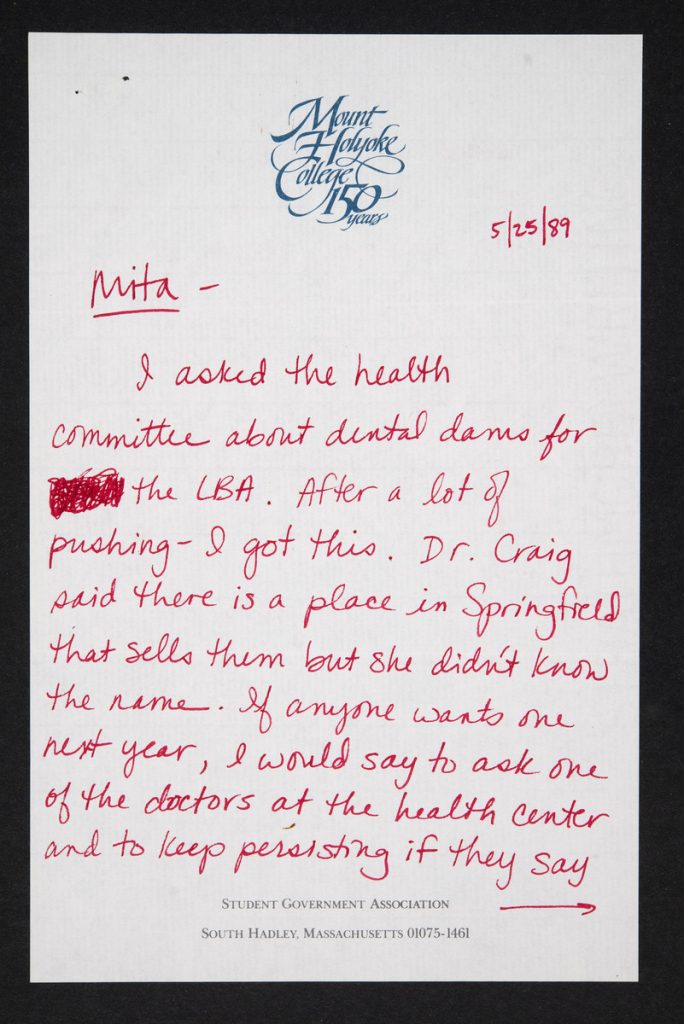 Mount
Holyoke
College
150
years
5/25/89
Mita -
I asked the health
committee about dental dams for
the LBA. After a lot of
pushing - I got this. Dr. Craig
said there is a place in Springfield
that sells them but she didn't know
the name. If anyone wants one
next year, I would say to ask one
of the doctors at the health center
and to keep persisting if they say
STUDENT GOVERNMENT ASSOCIATION
SOUTH HADLEY, MASSACHUSETTS 01075-1461